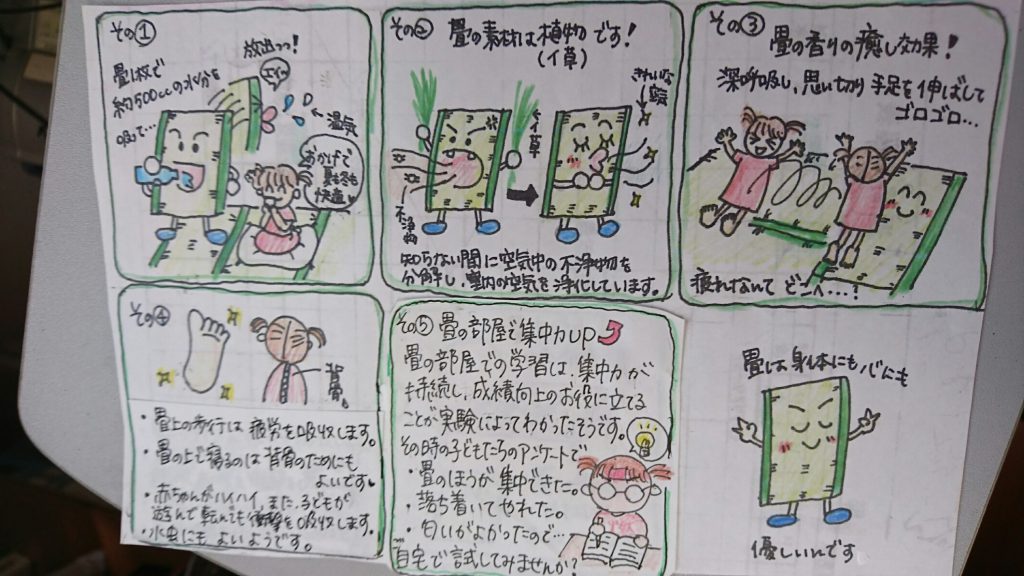 その①
放出っっ!
エイッ
畳1枚で
約500ccの水分を
吸って…
←湿気
おかげで
夏冬も
快適
その② 畳の素材は植物です!
(イ草)
きれいな
空気
←イ草
不浄物
知らない間に空気中の不浄物を
分解し、室内の空気を浄化しています。
その③
畳の香りの癒し効果!
深呼吸し、思い切り手足を伸ばして
ゴロゴロ…
疲れなんてどこへ…!
その④
背骨。
・畳上の歩行は疲労を吸収します。
・畳の上で寝るのは背骨のためにも
よいです。
・赤ちゃんがハイハイ、また、子どもが
遊んで転んでも衝撃を吸収します。
・水虫にもよいようです。
その⑤ 畳の部屋で集中力UP
畳の部屋での学習は、集中力が
持続し、成績向上のお役に立てる
ことが実験によってわかったそうです。
その時の子どもたちのアンケートで
・畳のほうが集中できた。
・落ち着いてやれた。
・匂いがよかったので…
自宅で試してみませんか?
畳は身体にも心にも
優しいんです